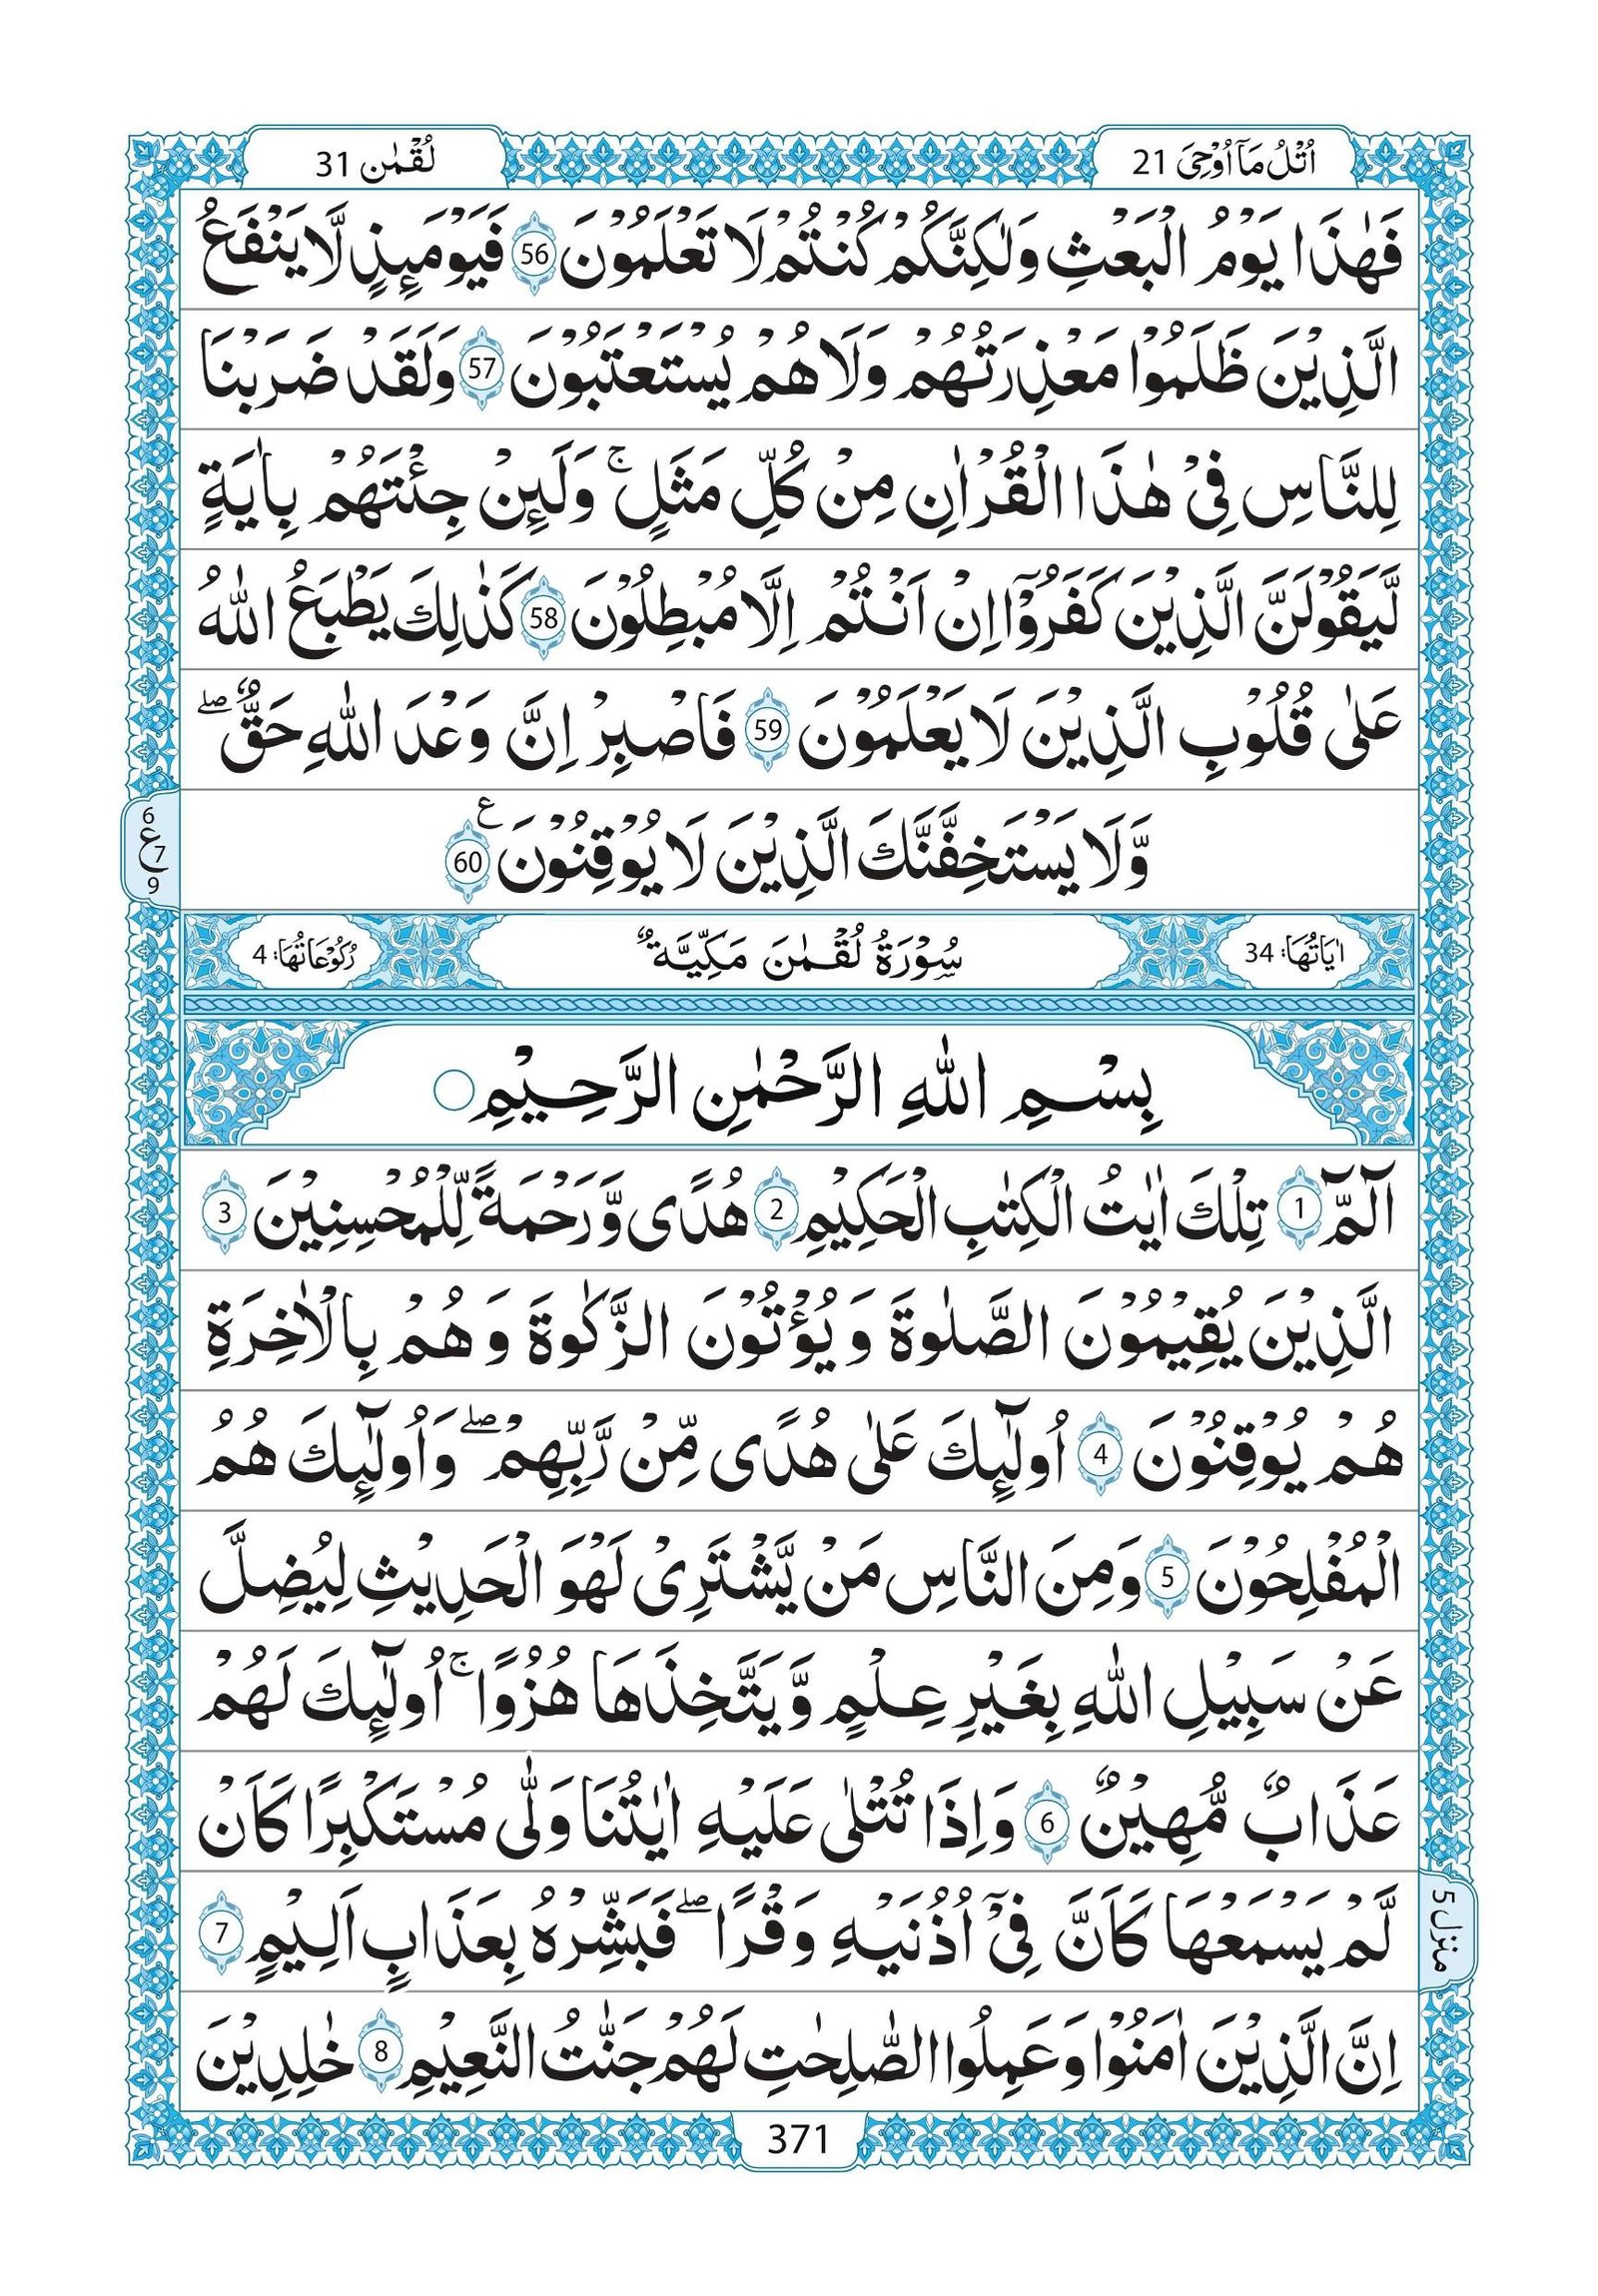 اُتْلُ مَاۤ اُوْحِیَ 21
لُقْمٰن 31
فَهٰذَا یَوْمُ الْبَعْثِ وَلٰكِنَّكُمْ كُنْتُمْ لَا تَعْلَمُوْنَ 56 فَیَوْمَىِٕذٍ لَّا یَنْفَعُ
الَّذِیْنَ ظَلَمُوْا مَعْذِرَتُهُمْ وَلَا هُمْ یُسْتَعْتَبُوْنَ 57 وَلَقَدْ ضَرَبْنَا
لِلنَّاسِ فِیْ هٰذَا الْقُرْاٰنِ مِنْ كُلِّ مَثَلٍ ۚ وَلَىِٕنْ جِئْتَهُمْ بِاٰیَةٍ
لَّیَقُوْلَنَّ الَّذِیْنَ كَفَرُوْۤا اِنْ اَنْتُمْ اِلَّا مُبْطِلُوْنَ 58 كَذٰلِكَ یَطْبَعُ اللّٰهُ
عَلٰی قُلُوْبِ الَّذِیْنَ لَا یَعْلَمُوْنَ 59 فَاصْبِرْ اِنَّ وَعْدَ اللّٰهِ حَقٌّ ۖ
وَّلَا یَسْتَخِفَّنَّكَ الَّذِیْنَ لَا یُوْقِنُوْنَ ع 60
6 ع 7 9
اٰیَاتُهَا: 34 سُوْرَةُ لُقْمٰنَ مَكِّیَّةٌ رُكُوْعَاتُهَا: 4
بِسْمِ اللّٰهِ الرَّحْمٰنِ الرَّحِیْمِ
الٓمّٓ 1 تِلْكَ اٰیٰتُ الْكِتٰبِ الْحَكِیْمِ 2 هُدًی وَّرَحْمَةً لِّلْمُحْسِنِیْنَ 3
الَّذِیْنَ یُقِیْمُوْنَ الصَّلٰوةَ وَیُؤْتُوْنَ الزَّكٰوةَ وَهُمْ بِالْاٰخِرَةِ
هُمْ یُوْقِنُوْنَ 4 اُولٰٓىِٕكَ عَلٰی هُدًی مِّنْ رَّبِّهِمْ ۖ وَاُولٰٓىِٕكَ هُمُ
الْمُفْلِحُوْنَ 5 وَمِنَ النَّاسِ مَنْ یَّشْتَرِیْ لَهْوَ الْحَدِیْثِ لِیُضِلَّ
عَنْ سَبِیْلِ اللّٰهِ بِغَیْرِ عِلْمٍ وَّیَتَّخِذَهَا هُزُوًا ۚ اُولٰٓىِٕكَ لَهُمْ
عَذَابٌ مُّهِیْنٌ 6 وَاِذَا تُتْلٰی عَلَیْهِ اٰیٰتُنَا وَلّٰی مُسْتَكْبِرًا كَاَنْ
لَّمْ یَسْمَعْهَا كَاَنَّ فِیْۤ اُذُنَیْهِ وَقْرًا ۖ فَبَشِّرْهُ بِعَذَابٍ اَلِیْمٍ 7
منزل 5
اِنَّ الَّذِیْنَ اٰمَنُوْا وَعَمِلُوا الصّٰلِحٰتِ لَهُمْ جَنّٰتُ النَّعِیْمِ 8 خٰلِدِیْنَ
371